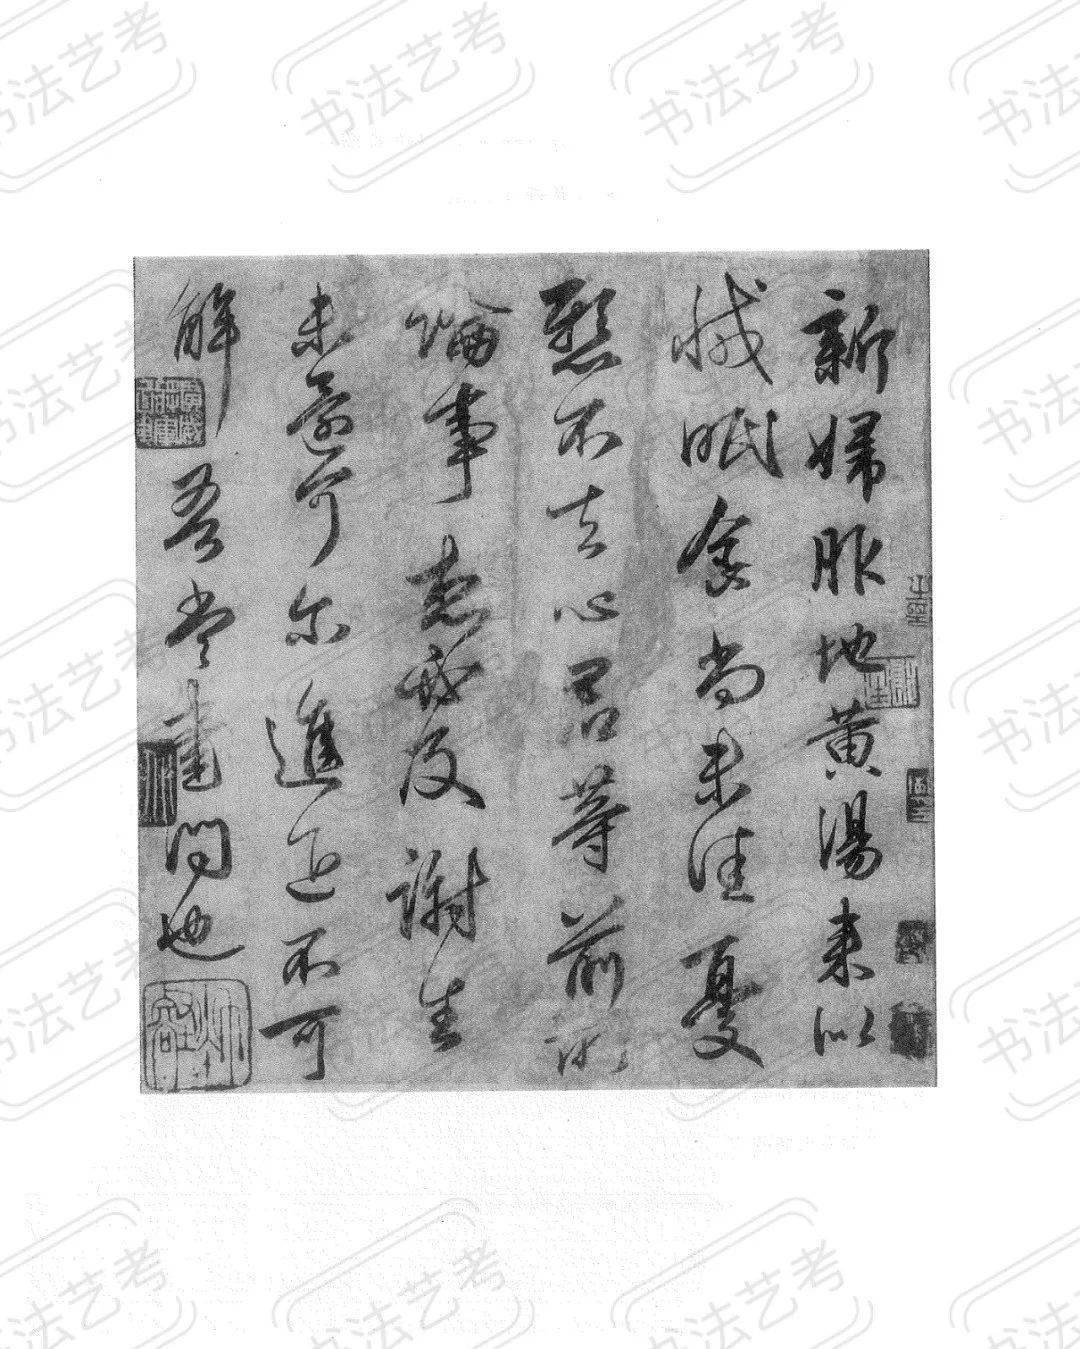 新婦服地黄湯来似
減眠食尚未佳憂
懸不去心君等前所
論事想必及謝生
未還可尔進退不可
解吾當書問也
书法艺考